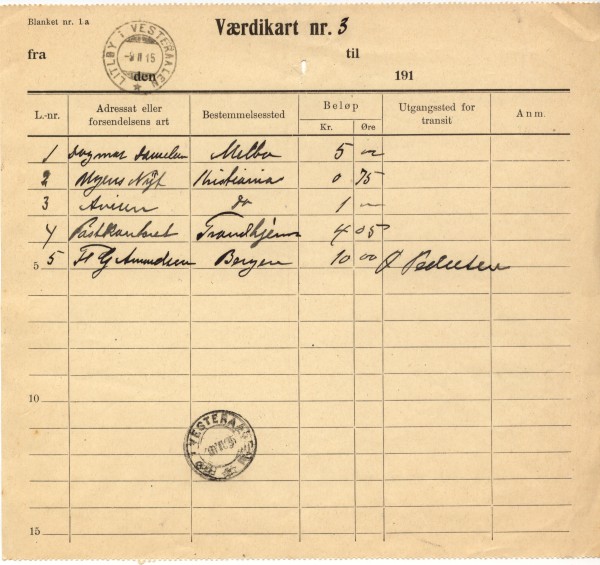 Blanket nr. 1a
Værdikart nr. 3
LITLØY I VESTERAALEN
15
fra til
den 191
L.-nr. Adressat eller forsendelsens art Bestemmelsessted Beløp Kr. Øre Utgangssted for transit Anm.
1 Dagmar Melbo 5 —
2 Nyt Kristiania 0 75
3 Avisen do 1 —
4 Postkontoret Trondhjem 4 05
5 5 Fr G Amundsen Bergen 10 00 Ø Pedersen
10
I VESTERAALEN
15